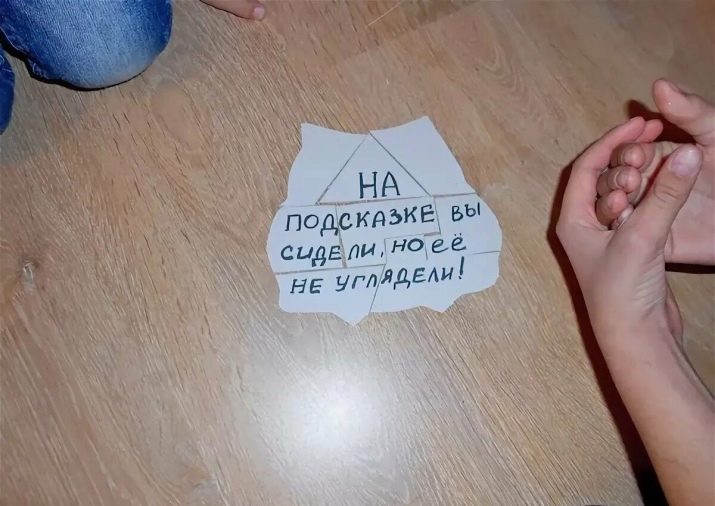 НА
ПОДСКАЗКЕ ВЫ
СИДЕЛИ, НО ЕЁ
НЕ УГЛЯДЕЛИ!